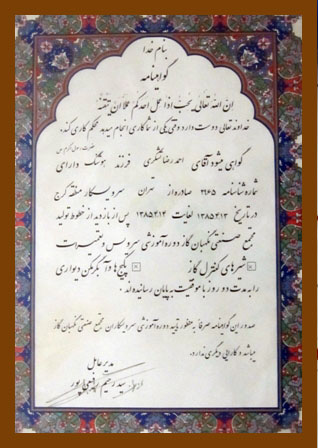 بنام خدا
گواهینامه
ان الله تعالی یحب اذا عمل احدکم عملاً ان یتقنه
خداوند تعالی دوست دارد وقتی یکی از شما کاری انجام میدهد محکم کاری کند.
گواهی میشود آقای احمدرضا لشگری فرزند هوشنگ دارای
شماره شناسنامه ۲۶۶۵ صادره از تهران سرویسکار منطقه کرج
در تاریخ ۱۳۸۵/۴/۱۳ لغایت ۱۳۸۵/۴/۱۴ پس از بازدید از خطوط تولید
مجتمع صنعتی نگهبان گاز دوره آموزشی سرویس و نصب است
شیرهای کنترل گاز پکیج ها و آبگرمکن دیواری
را به مدت دو روز با موفقیت به پایان رسانیده اند.
صدور این گواهینامه صرفاً به منظور تایید دوره آموزشی سرویسکاران مجتمع صنعتی نگهبان گاز
میباشد و کارایی دیگری ندارد.
مدیر عامل
سید رحیم